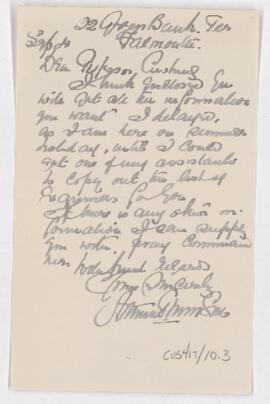 22 Green Bank. Ter
Falmouth.
Dear Professor Cushny
I think Enclosed you
will get all the information
you want I delayed,
as I am here on summer
holiday, until I could
get one of my assistants
to copy out the list of
for you
If there is any other in-
formation I can supply
you with pray command
me. With kind regards
Yours Sincerely
CUS/17/10.3